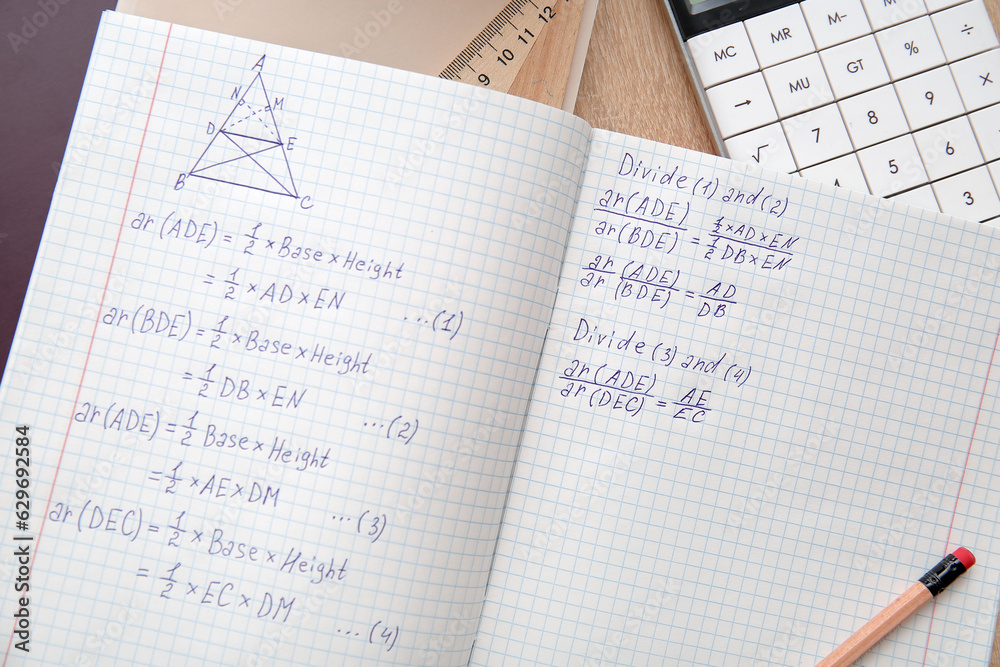 A
N M
D E
B C
ar(ADE) = 1/2 × Base × Height
= 1/2 × AD × EN ...(1)
ar(BDE) = 1/2 × Base × Height
= 1/2 DB × EN ...(2)
ar(ADE) = 1/2 Base × Height
= 1/2 × AE × DM ...(3)
ar(DEC) = 1/2 × Base × Height
= 1/2 × EC × DM ...(4)
Divide (1) and (2)
ar(ADE)/ar(BDE) = 1/2 × AD × EN / 1/2 DB × EN
ar (ADE)/ar (BDE) = AD/DB
Divide (3) and (4)
ar(ADE)/ar(DEC) = AE/EC
9 10 11 12
MC MR M-
→ MU GT % ÷
√ 7 8 9 ×
5 6
3
Adobe Stock | #629692584